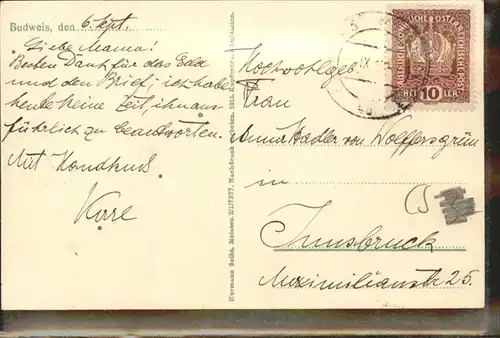 Budweis, den 6. Sept.
Liebe Mama!
Besten Dank für das Geld
und den Brief; ich habe
heute keine Zeit, ihn aus-
führlich zu beantworten.
Mit Handkuss
Hermann Seibt, Meissen. 2/1/7377. Nachdruck verboten. 1913. Kunstfarben-Imitation.
KAISERLICHE KÖNIGLICHE ÖSTERREICHISCHE POST
HELLER 10
IX
Hochwohlgeb.
Frau
Anna Hadler von Wolffersgrün
in
Innsbruck
Maximilianstr 25.